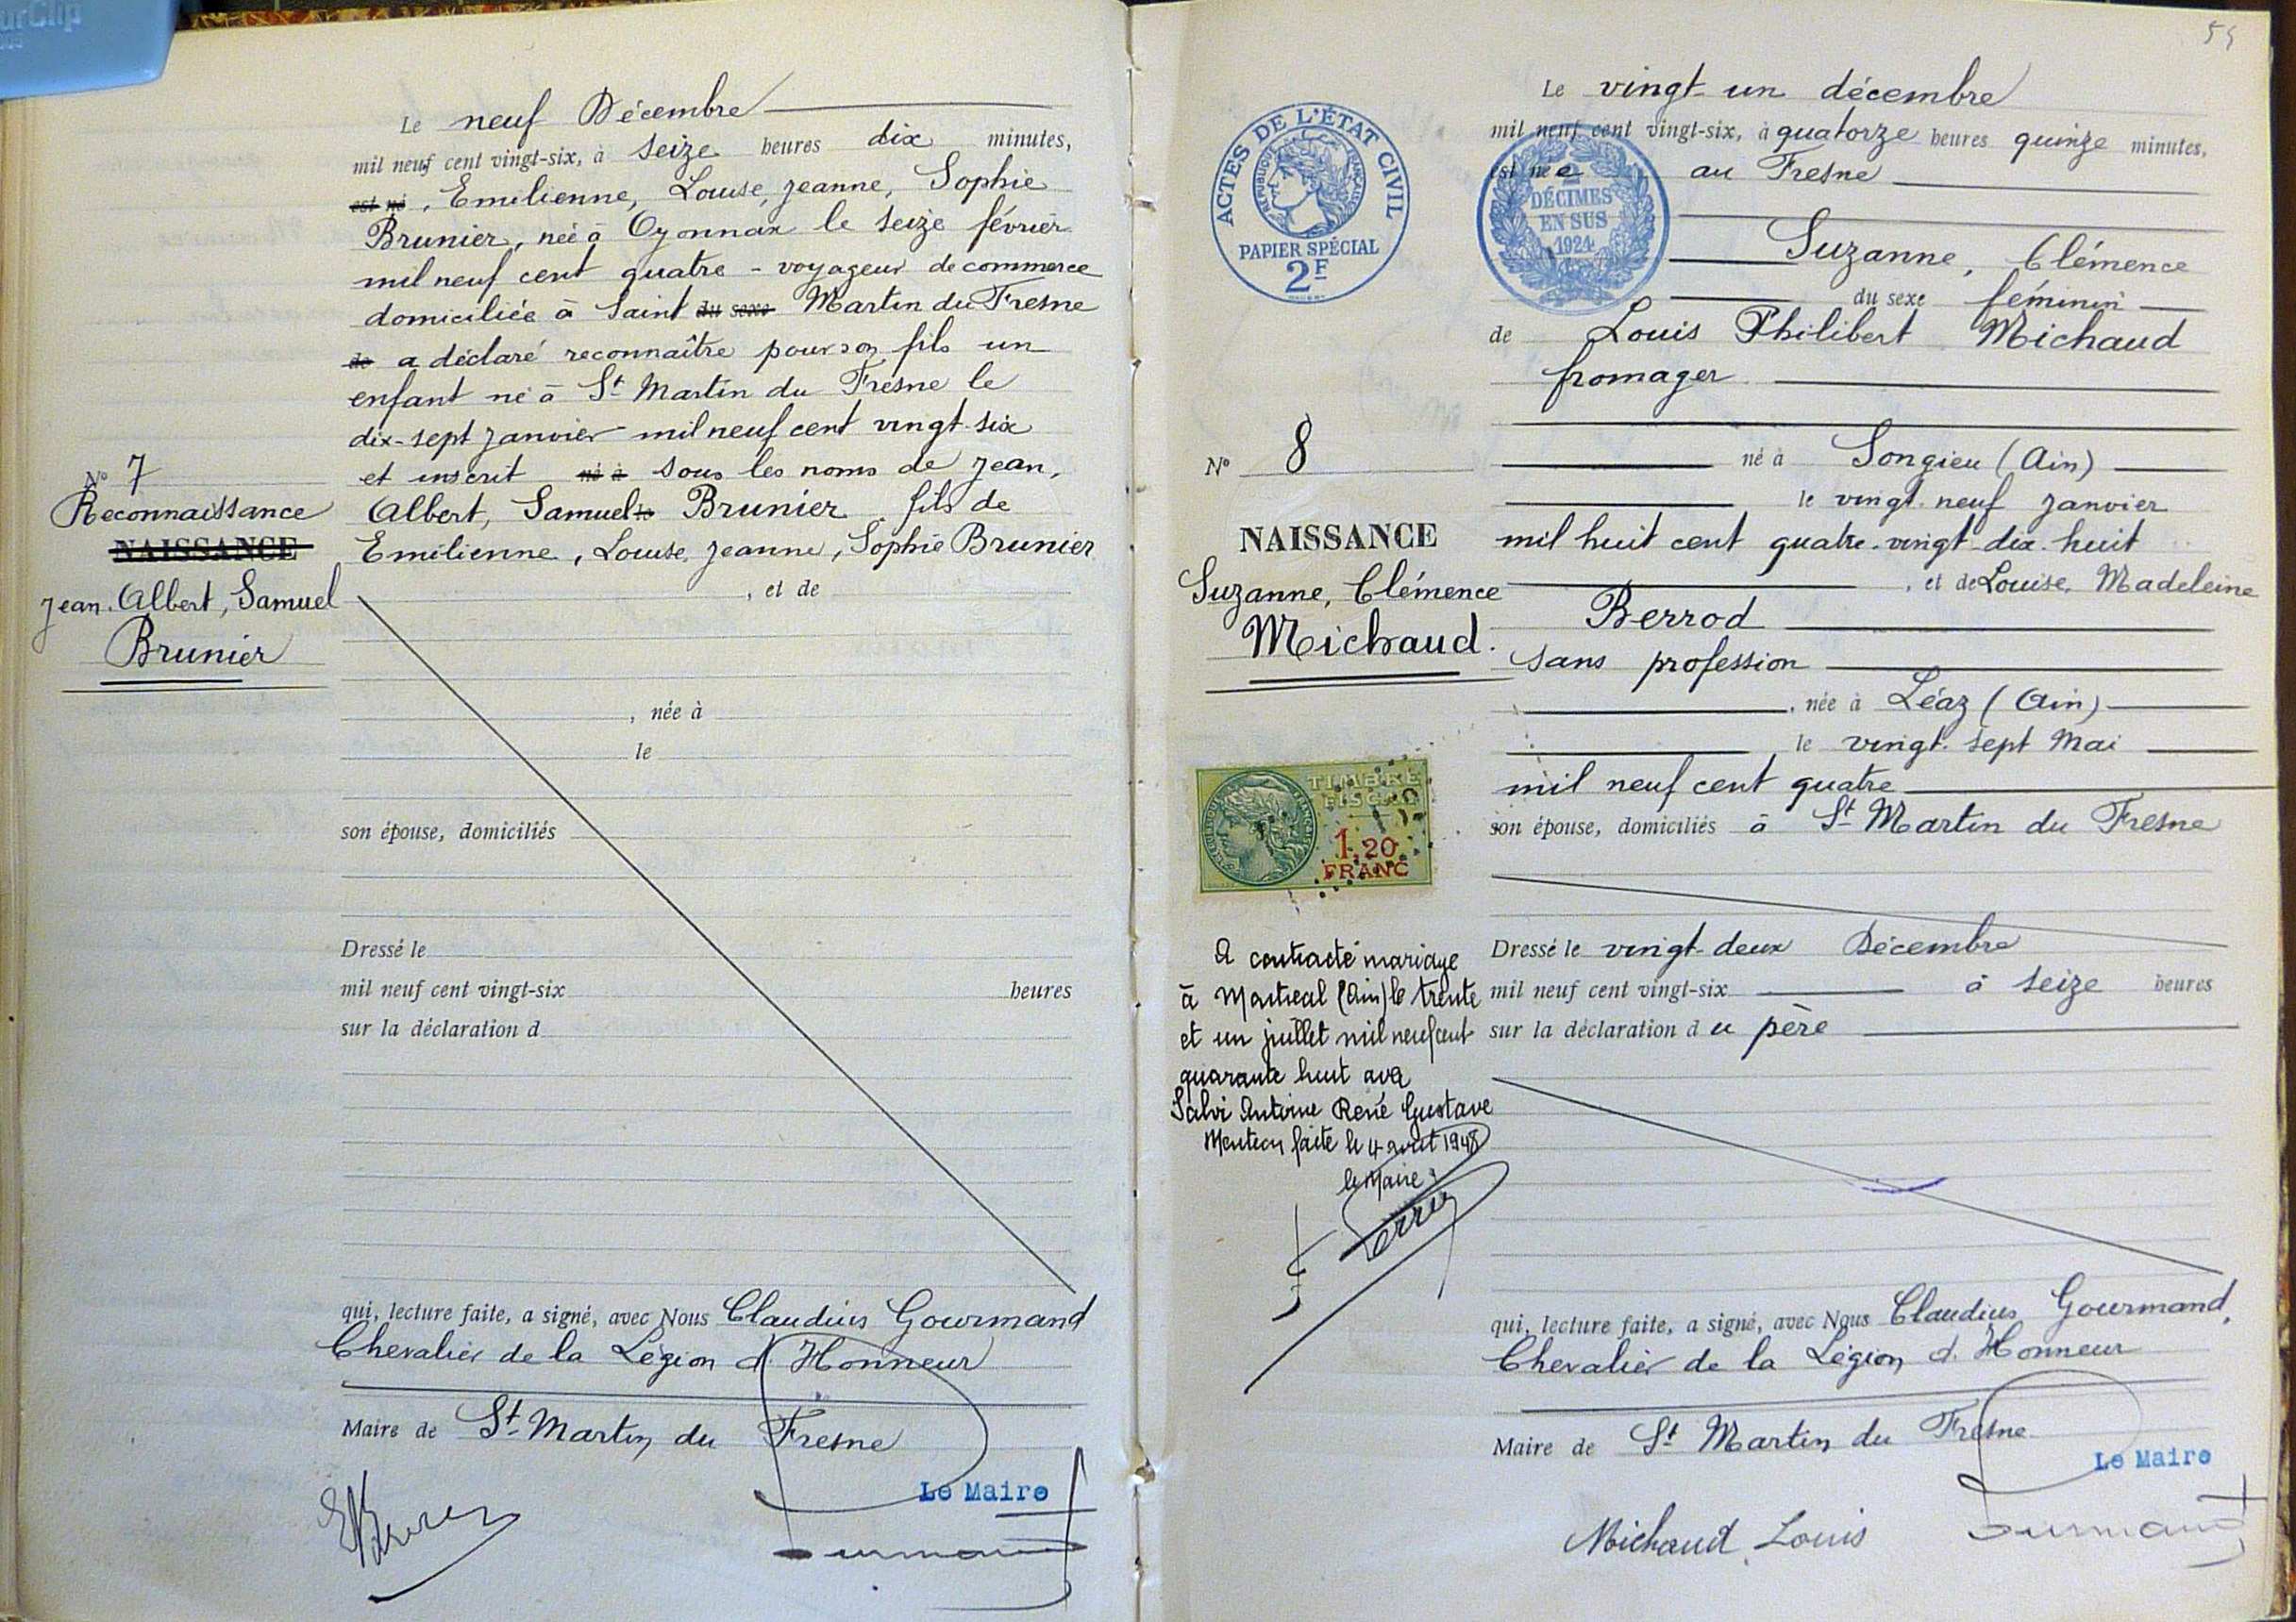 Le neuf Décembre
mil neuf cent vingt-six, à seize heures dix minutes,
est né, Emilienne, Louise, Jeanne, Sophie
Brunier, née à Oyonnax le seize février
mil neuf cent quatre - voyageur de commerce
domiciliée à Saint du sexe Martin du Fresne
de a déclaré reconnaître pour son fils un
enfant né à St Martin du Fresne le
dix-sept janvier mil neuf cent vingt-six
et inscrit né à sous les noms de Jean,
Albert, Samuel le Brunier fils de
Emilienne, Louise, Jeanne, Sophie Brunier
, et de
, née à
le
son épouse, domiciliés
Dressé le
mil neuf cent vingt-six heures
sur la déclaration d
qui, lecture faite, a signé, avec Nous Claudius Gourmand
Chevalier de la Légion d'Honneur
Maire de St Martin du Fresne
Le Maire
N° 7
Reconnaissance
NAISSANCE
Jean, Albert, Samuel
Brunier
Le vingt-un décembre
mil neuf cent vingt-six, à quatorze heures quinze minutes,
est née au Fresne
Suzanne, Clémence
du sexe féminin
de Louis Philibert Michaud
fromager
né à Songieu (Ain)
le vingt-neuf janvier
mil huit cent quatre-vingt-dix-huit
, et de Louise, Madeleine
Berrod
sans profession
, née à Léaz (Ain)
le vingt-sept Mai
mil neuf cent quatre
son épouse, domiciliés à St Martin du Fresne
Dressé le vingt-deux Décembre
mil neuf cent vingt-six à seize heures
sur la déclaration du père
qui, lecture faite, a signé, avec Nous Claudius Gourmand,
Chevalier de la Légion d'Honneur
Maire de St Martin du Fresne
Le Maire
Michaud Louis
ACTES DE L'ÉTAT CIVIL
RÉPUBLIQUE FRANÇAISE
PAPIER SPÉCIAL
2F
2
DÉCIMES
EN SUS
1924
N° 8
NAISSANCE
Suzanne, Clémence
Michaud.
TIMBRE
FISCAL
1,20
FRANC
A contracté mariage
à Montréal (Ain) le trente
et un juillet mil neuf cent
quarante huit avec
Salvi Antoine René Gustave
Mention faite le 4 août 1948
le Maire :